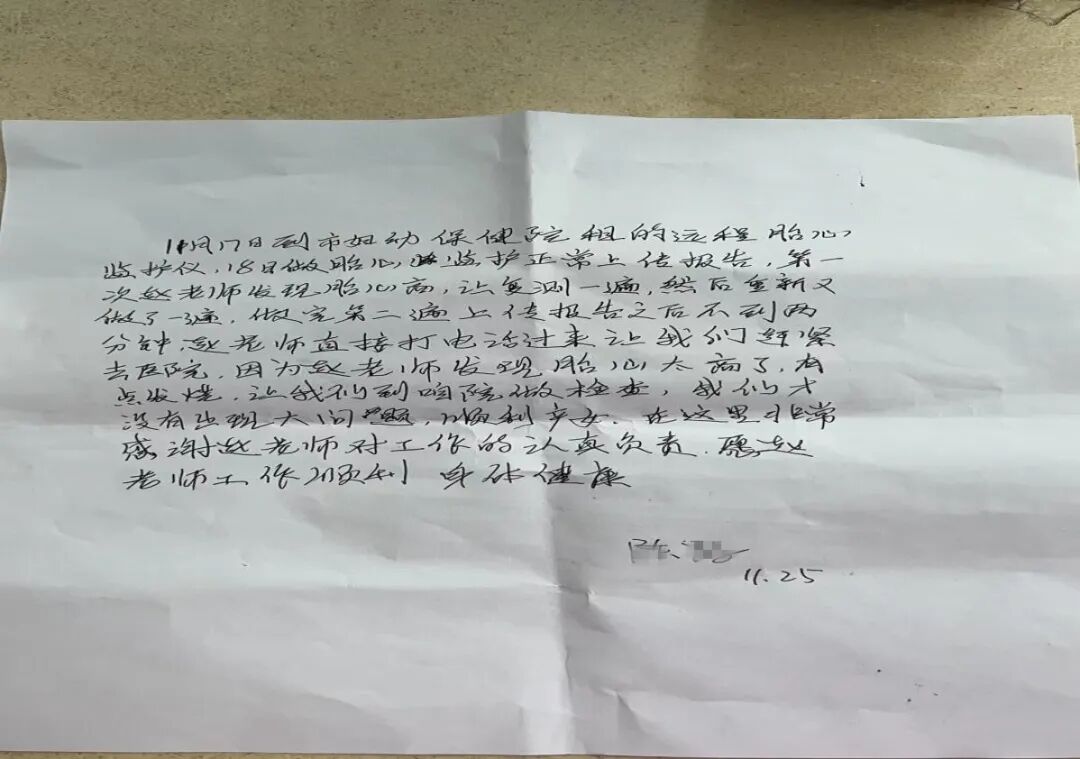 11月17日到市妇幼保健院租的远程胎心
监护仪，18日做胎心监护正常上传报告，第一
次赵老师发现胎心高，让复测一遍，然后重新又
做了一遍，做完第二遍上传报告之后不到两
分钟赵老师直接打电话过来让我们赶紧
去医院，因为赵老师发现胎心太高了，有
点发烧，让我们到咱院做检查，我们才
没有出现大问题，顺利产女．在这里非常
感谢赵老师对工作的认真负责．愿赵
老师工作顺利 身体健康
陈
11.25